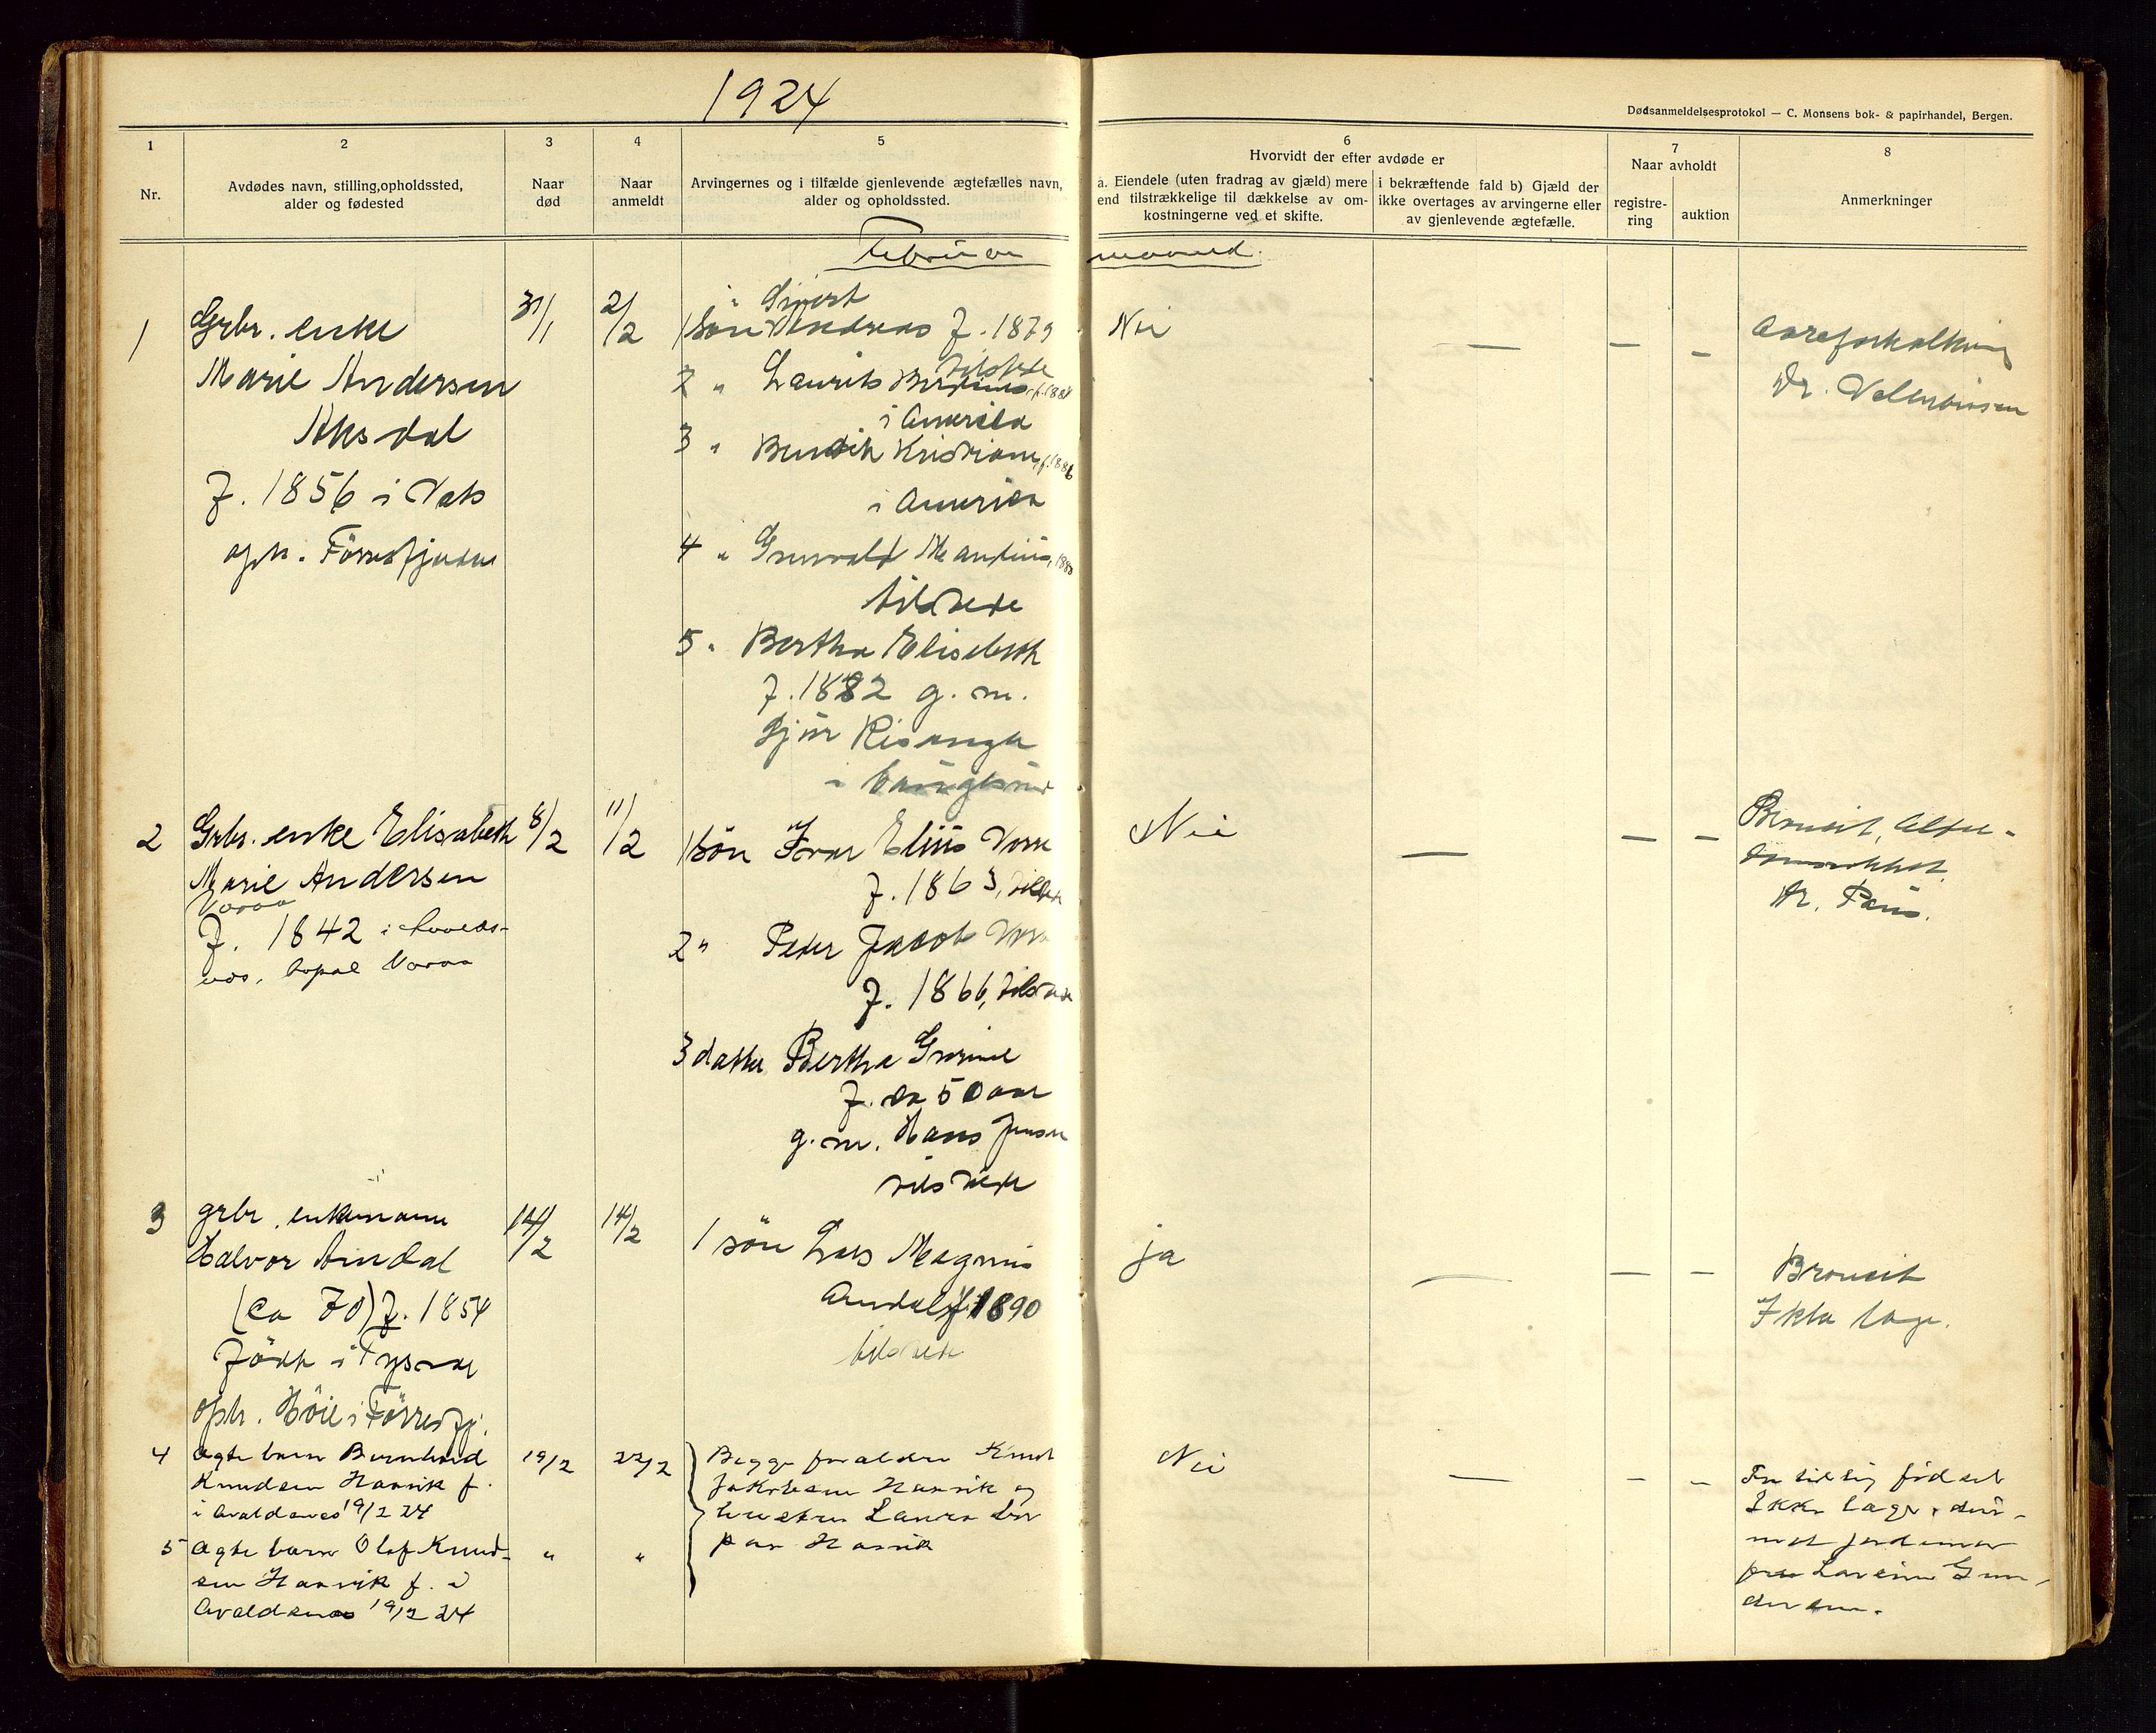 1924
Dødsanmeldelsesprotokol — C. Monsens bok- & papirhandel, Bergen.
1
Nr.
2
Avdødes navn, stilling, opholdssted,
alder og fødested
3
Naar
død
4
Naar
anmeldt
5
Arvingernes og i tilfælde gjenlevende ægtefælles navn,
alder og opholdssted.
6
Hvorvidt der efter avdøde er
a. Eiendele (uten fradrag av gjæld) mere
end tilstrækkelige til dækkelse av om-
kostningerne ved et skifte.
i bekræftende fald b) Gjæld der
ikke overtages av arvingerne eller
av gjenlevende ægtefælle.
7
Naar avholdt
registre-
ring
auktion
8
Anmerkninger
Februar maaned.
1
Grbr. enke
Marie Andersen
Aksdal
f. 1856 i Vats
oph. Förresfjorden
31/1
2/2
" Sivert
1 Sön Andreas f. 1879
tilstede
2 " Laurits f. 188
i Amerika
3 " Bendik Kristian, f. 1886
i Amerika
4 " Mandius, 188
tilstede
5 " Bertha Elisabeth
f. 1882 g. m.
Risanger
i
Nei
—
—
—
Aareforkalkning
Dr.
2
Grbr. enke Elisabeth
Marie Andersen
Voraa
f. 1842 i
Voraa
8/2
11/2
1 sön Ivar Elius
f. 1863, tilstede
2 " Peder Jacob
f. 1866, tilstede
3 datter Bertha
f. ca 50 aar
g. m. Hans Jensen
tilstede
Nei
—
—
—
Bronkit, Alder-
domssvakhet.
Dr.
3
grbr. enkemann
Halvor Amdal
(ca 70) f. 1854
Födt i Tysvær
oph. Höie i Förresfj.
12/2
14/2
1 sön Lars Magnus
Amdal f. 1890
tilstede
ja
—
—
—
Bronkit
Ikke læge.
4
Ægte barn Bernhard
Knudsen Haavik f.
i Avaldsnes 19/2 24
19/2
22/2
Begge forældre Knut
Jakobsen Haavik og
hustru Laura
Haavik
Nei
—
—
—
For tidlig födsel
Ikke læge, der-
mot jordemor
fru Gun-
dersen.
5
Ægte barn Olaf Knud-
sen Haavik f. i
Avaldsnes 19/2 24
"
"